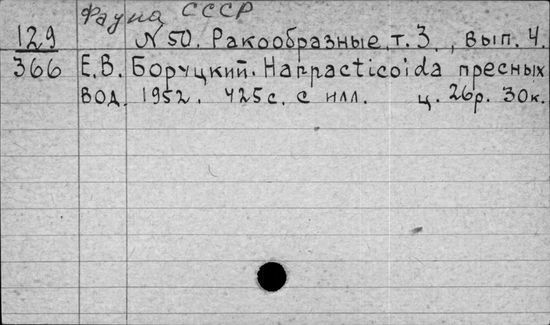 Фауна СССР
129 N 50. Ракообразные, т. 3., вып. 4.
366 Е.В. Боруцкий. Harpacticoida пресных
вод. 1952. 425с. с илл. ц. 26р. 30к.